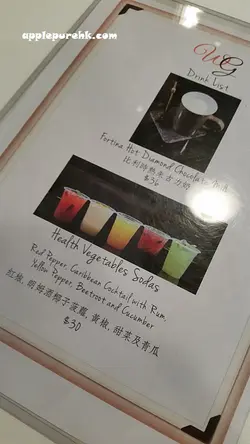 applepurehk.com
WG
Drink List
Fortina Hot Diamond Chocolate Milk
比利時熱朱古力奶
$36
Health Vegetables Sodas
Red Pepper, Caribbean Cocktail with Rum,
Yellow Pepper, Beetroot and Cucumber
紅椒, 朗姆酒椰子菠蘿, 黃椒, 甜菜及青瓜
$30